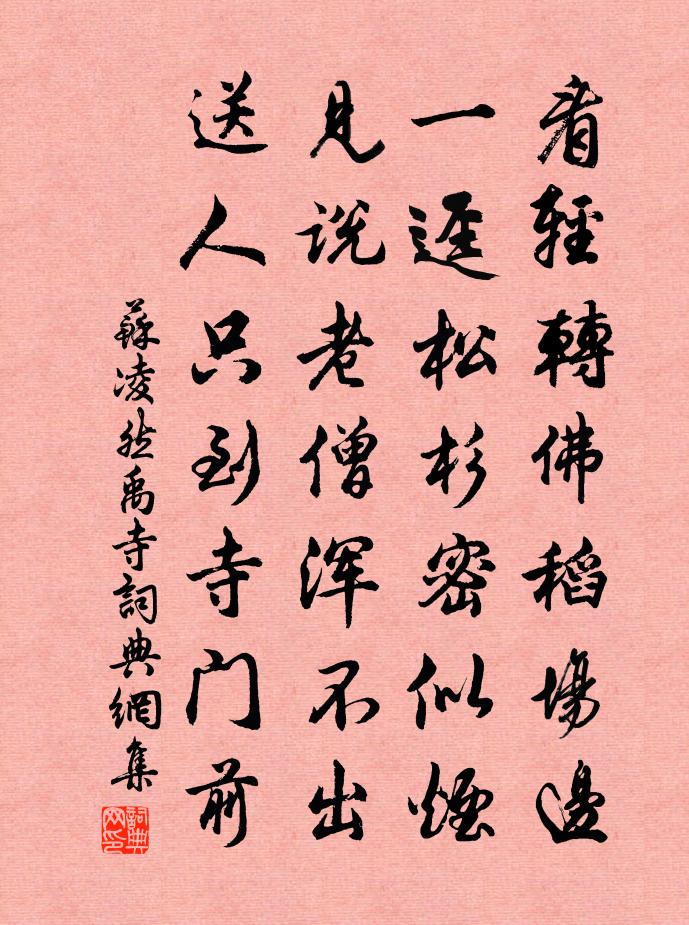 看輕轉佛稻場邊
一逕松杉密似煙
見说老僧浑不出
送人只到寺门前
蘇凌然禹寺詞典網集
詞典网印